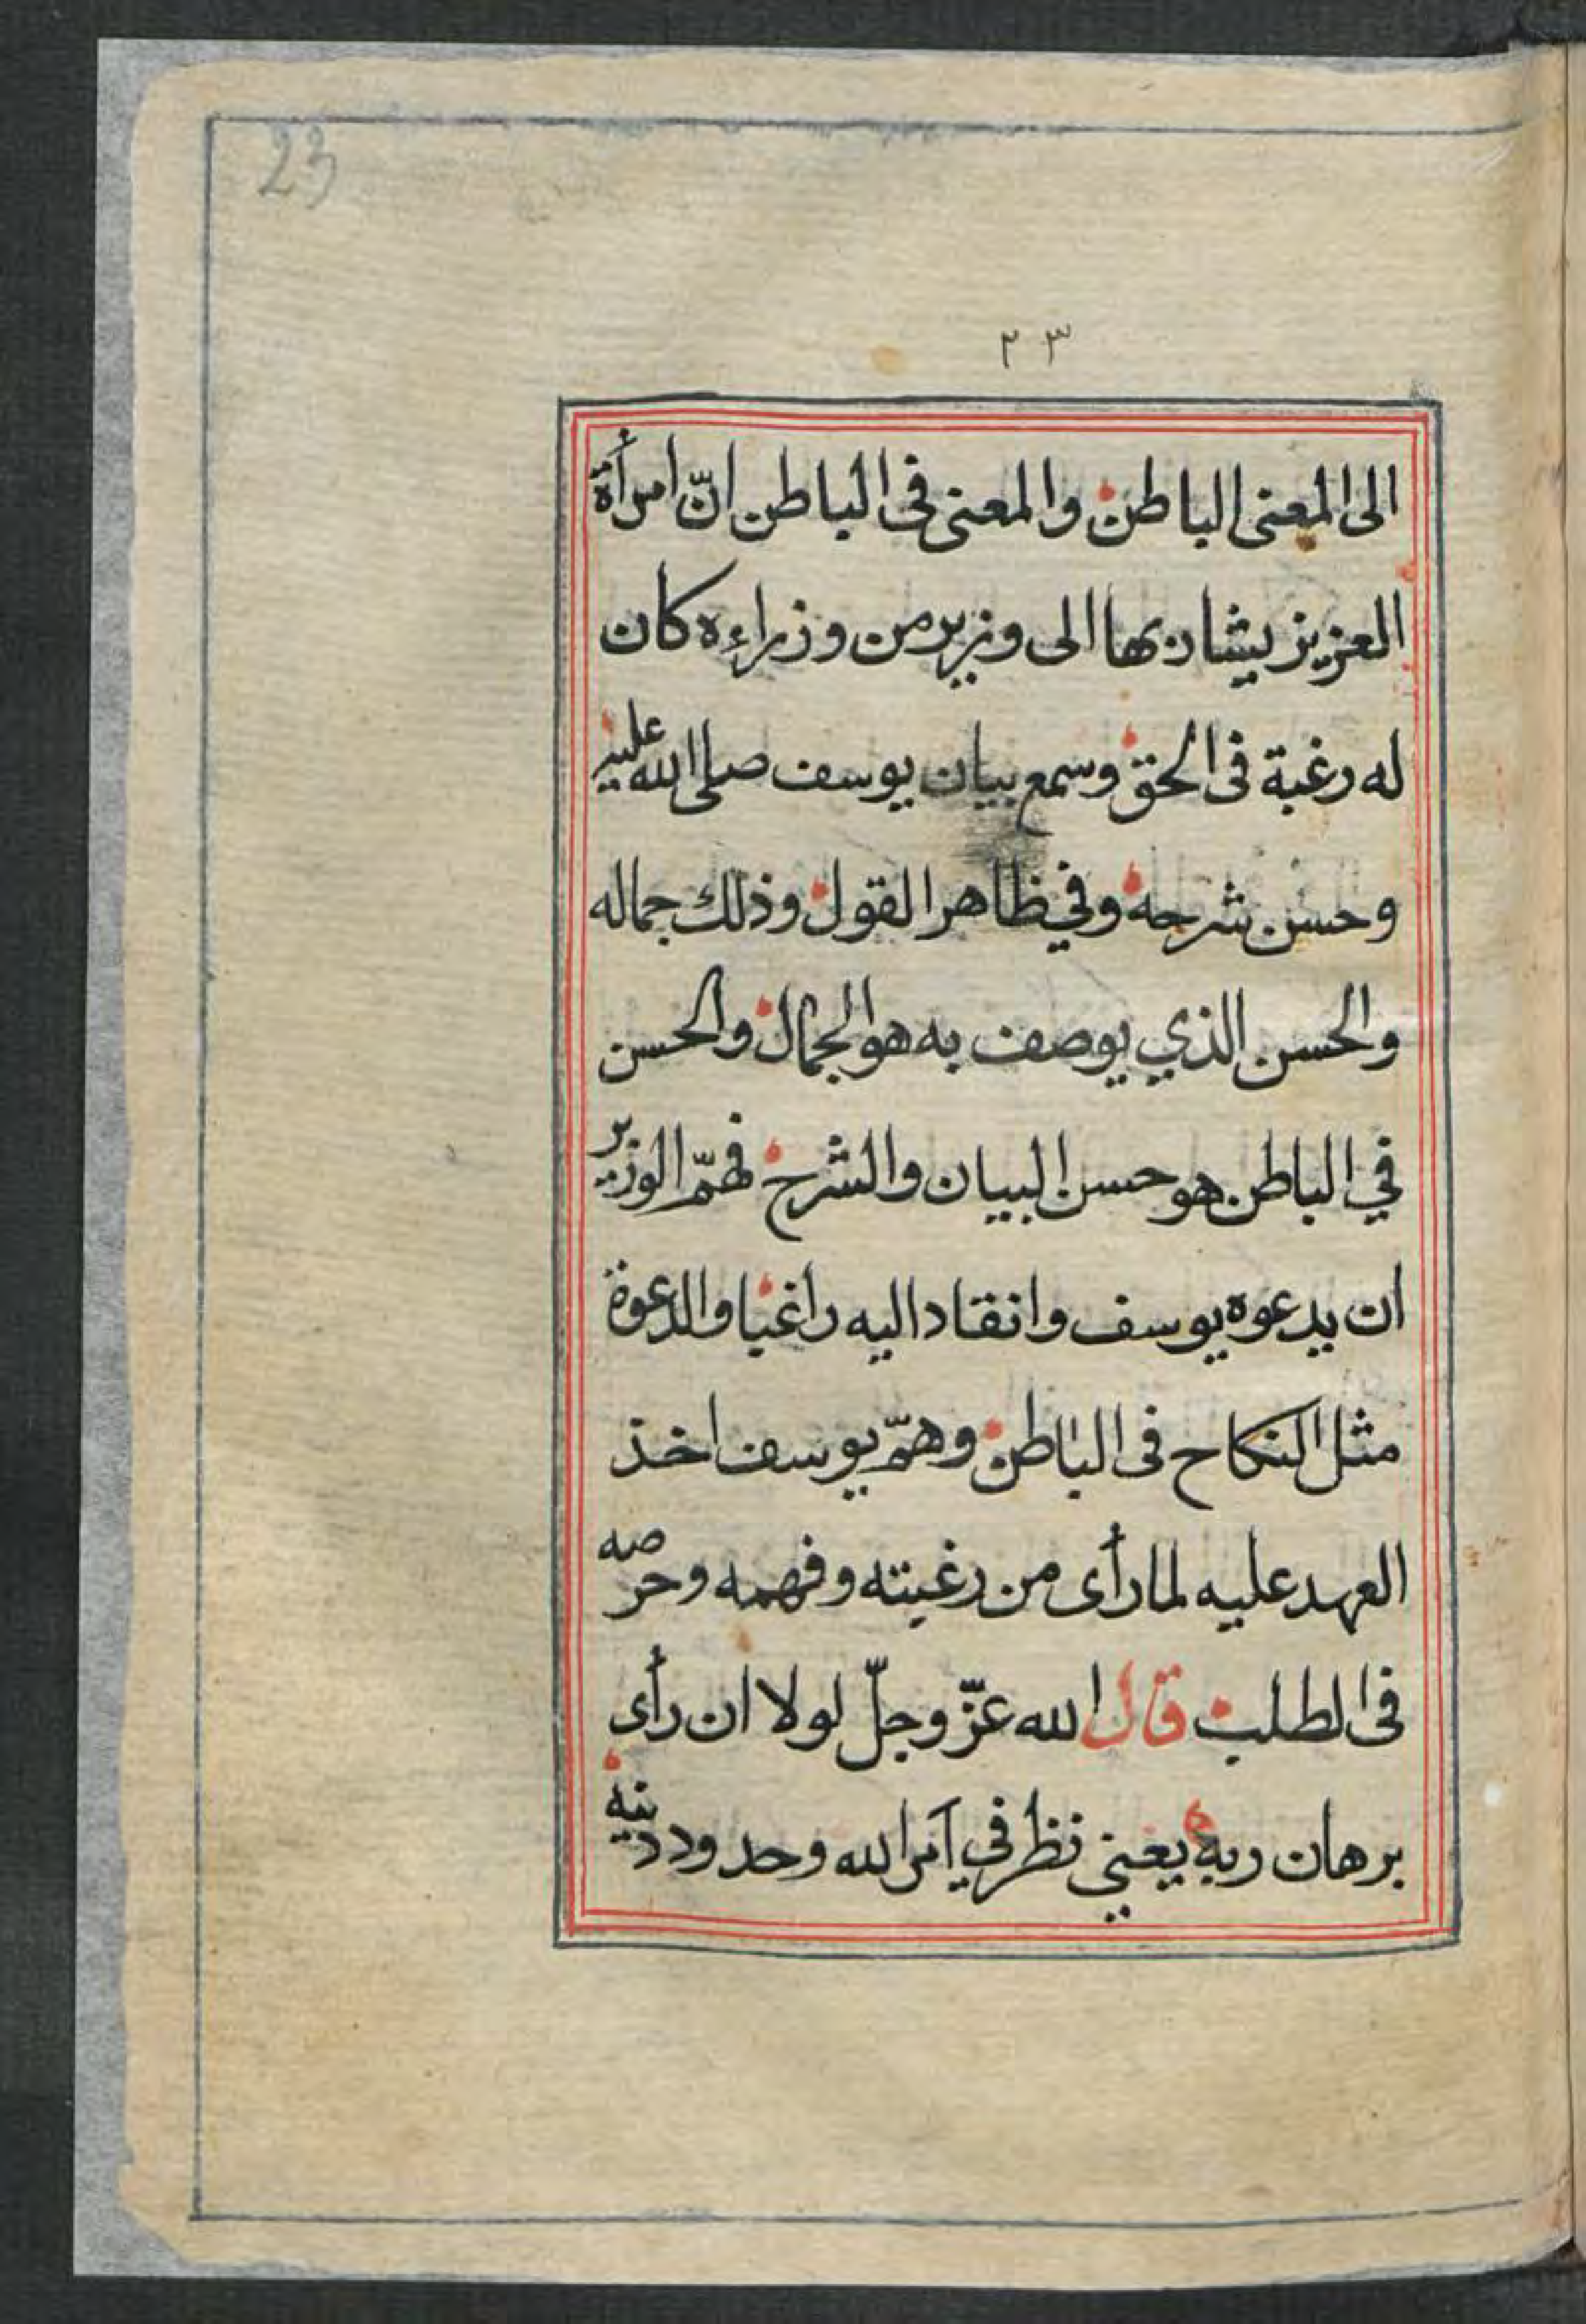 23
٢٣
الى المعنى الباطن والمعنى فى الباطن انّ امرأة
العزيز يشار بها الى وزير من وزراءه كان
له رغبة فى الحق وسمع بيان يوسف صلى الله عليه
وحسن شرحه وفي ظاهر القول وذلك جماله
والحسن الذي يوصف به هو الجمال والحسن
في الباطن هو حسن البيان والشرح فهمّ الوزير
ان يدعوه يوسف وانقاد اليه راغبا والدعوة
مثل النكاح فى الباطن وهمّ يوسف اخذ
العهد عليه لما رأى من رغبته وفهمه وحرصه
فى الطلب قال الله عزّ وجلّ لولا ان رأى
برهان ربه يعني نظر في آمر الله وحدود دينه